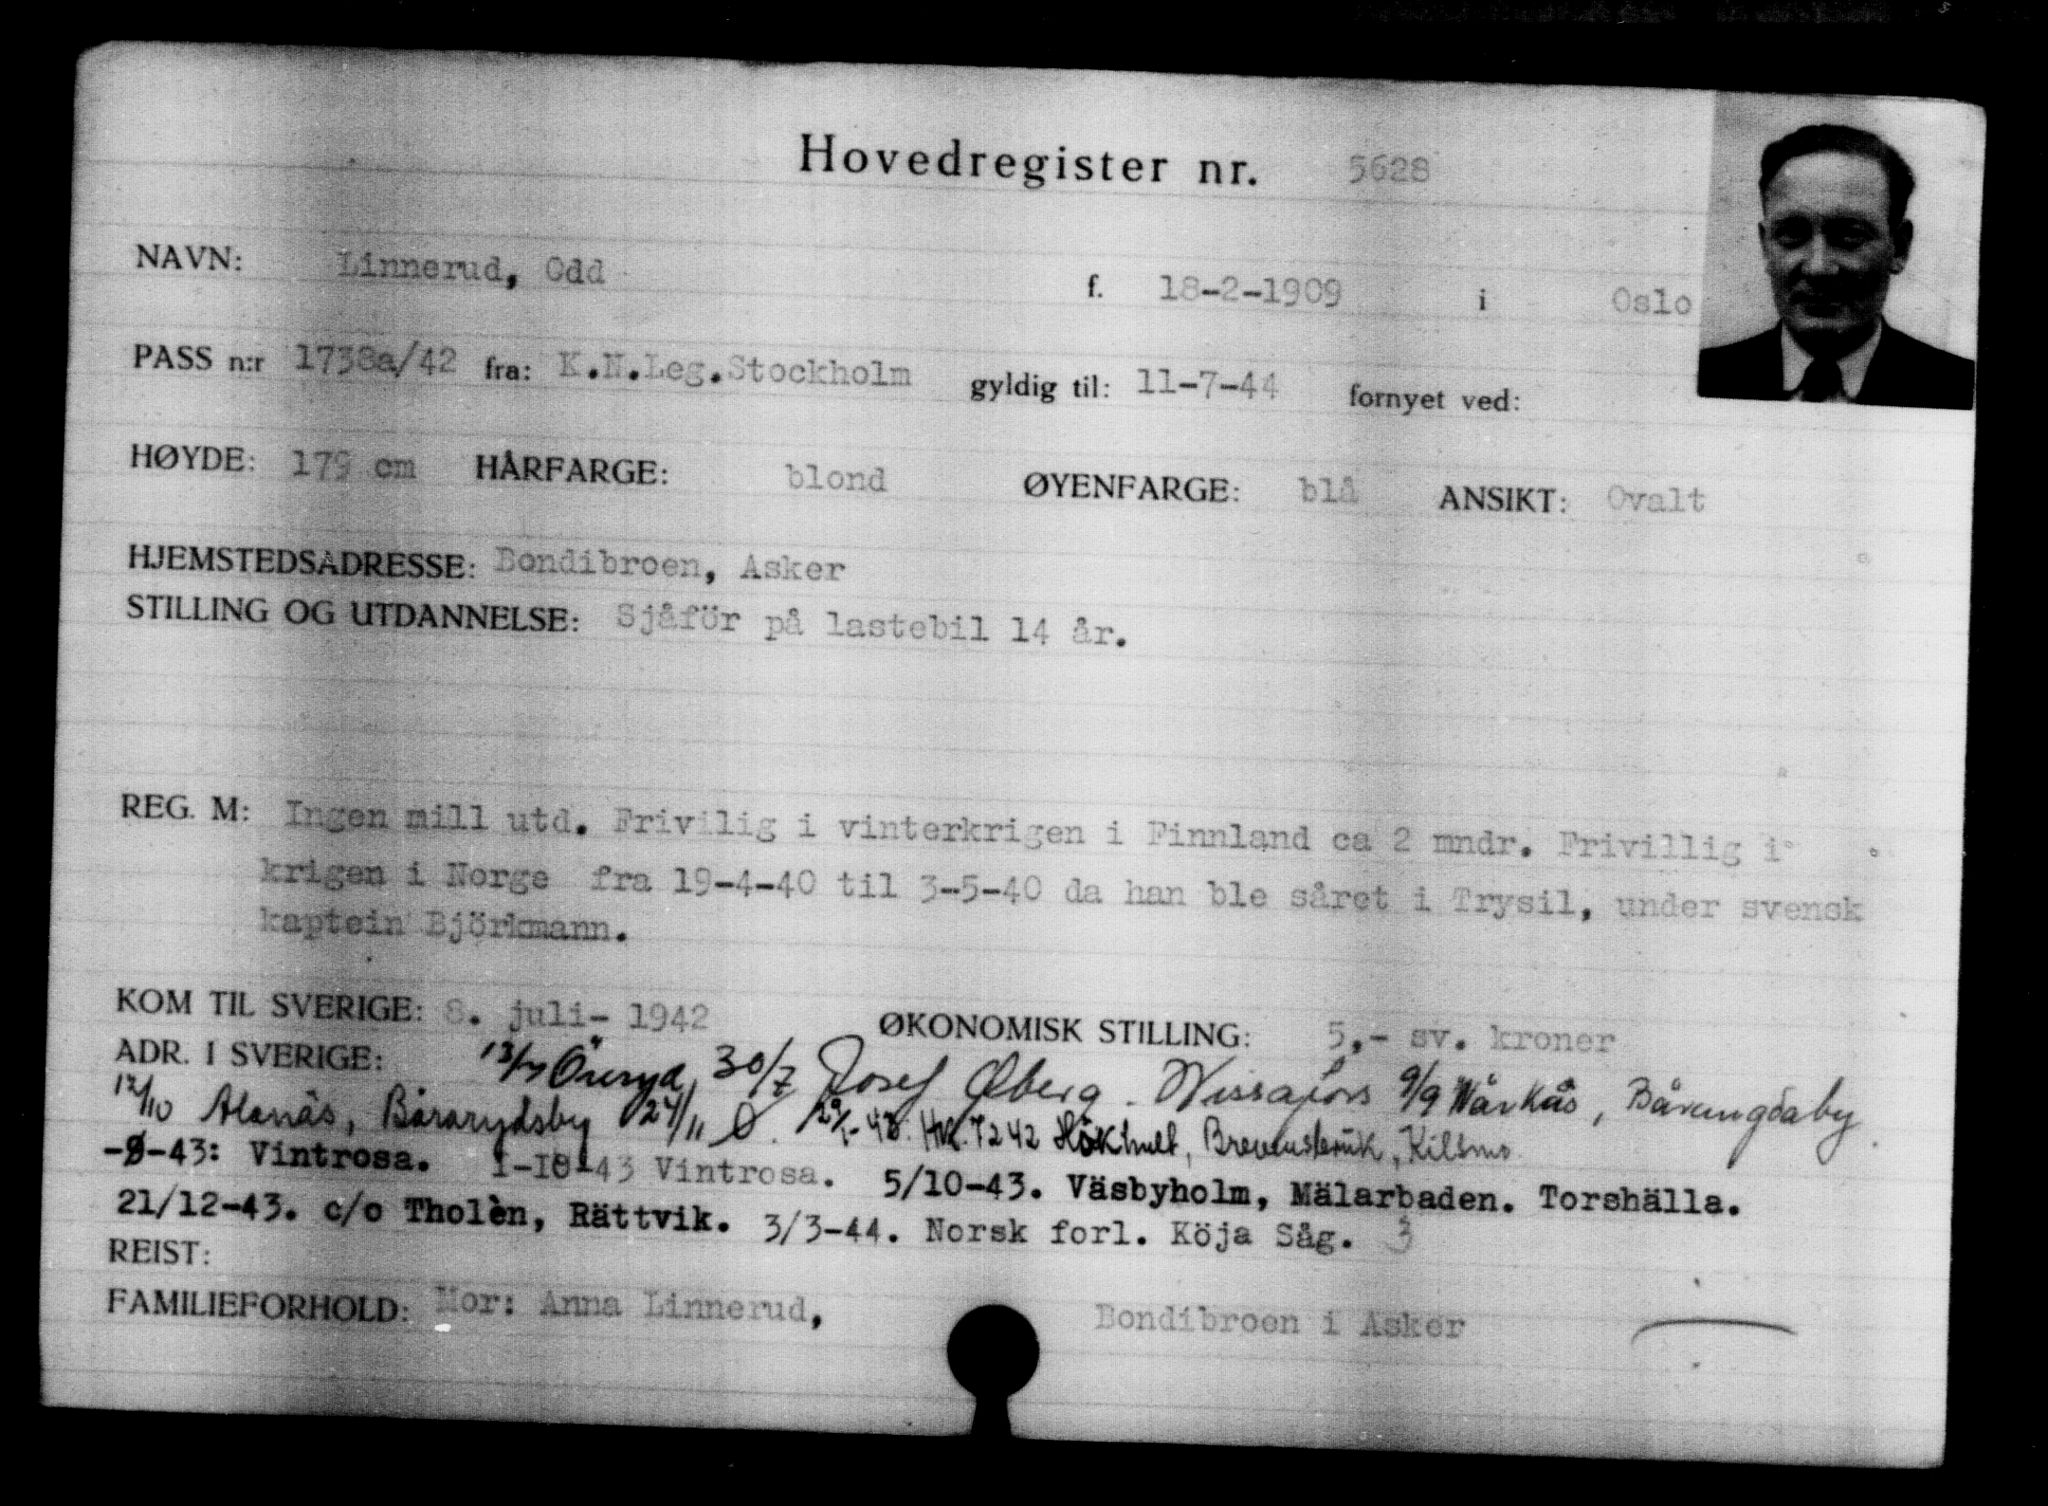 Hovedregister nr. 5628
NAVN: Linnerud, Odd f. 18-2-1909 i Oslo
PASS n:r 1738a/42 fra: K.N.Leg.Stockholm gyldig til: 11-7-44 fornyet ved:
HØYDE: 179 cm HÅRFARGE: blond ØYENFARGE: blå ANSIKT: Ovalt
HJEMSTEDSADRESSE: Bondibroen, Asker
STILLING OG UTDANNELSE: Sjåför på lastebil 14 år.
REG. M: Ingen mill utd. Frivilig i vinterkrigen i Finnland ca 2 mndr. Frivillig i
krigen i Norge fra 19-4-40 til 3-5-40 da han ble såret i Trysil, under svensk
kaptein Björkmann.
KOM TIL SVERIGE: 8. juli- 1942 ØKONOMISK STILLING: 5,- sv. kroner
ADR. I SVERIGE: 13/7 Öreryd, 30/7 Josef Öberg. Wissafors 9/9 Wårkås,
12/10 Alanäs, 27/11 Ø. Hr. 7242 Hökhult, Brevensbruk, Kilsmo.
-9-43: Vintrosa. 1-10-43 Vintrosa. 5/10-43. Väsbyholm, Mälarbaden. Torshälla.
21/12-43. c/o Tholèn, Rättvik. 3/3-44. Norsk forl. Köja Såg. 3
REIST:
FAMILIEFORHOLD: Mor: Anna Linnerud, Bondibroen i Asker